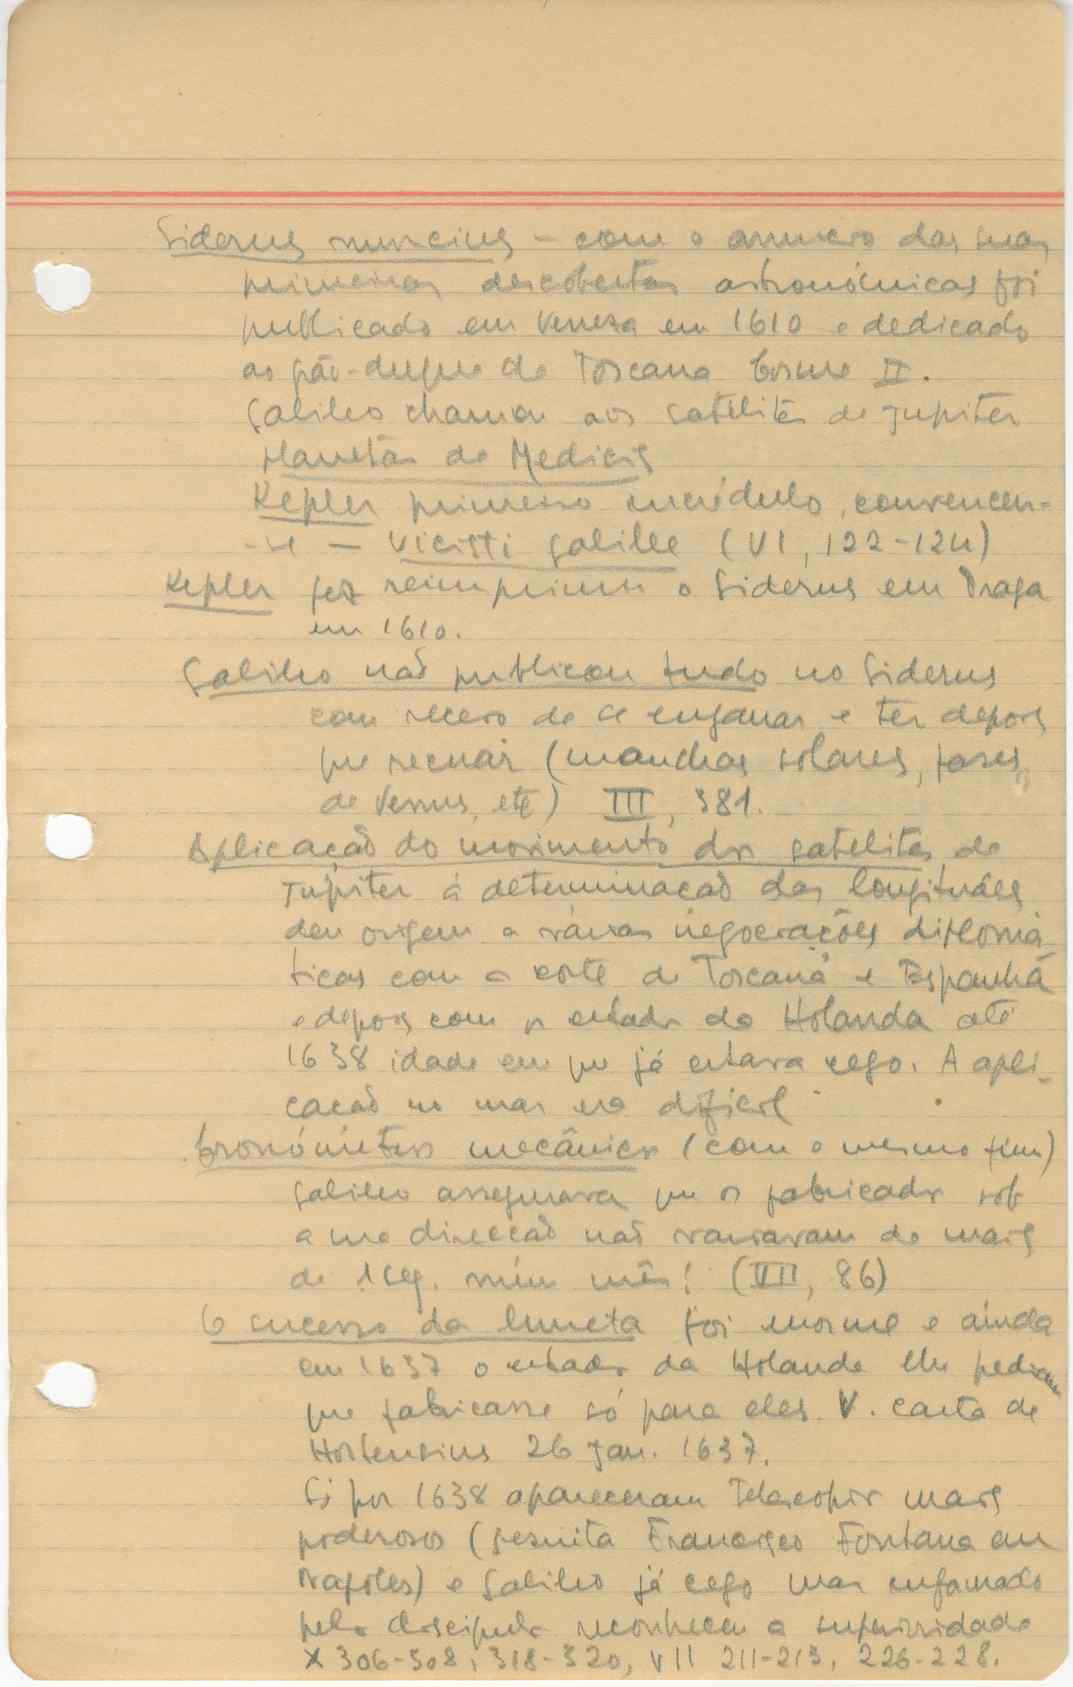 Siderus nuncius – com o anuncio das suas
primeiras descobertas astronómicas foi
publicado em Veneza em 1610 e dedicado
ao grão-duque de Toscana Cosme II.
Galileo chamou aos satelites de Jupiter
planetas de Medicis
Kepler primeiro incrédulo, convenceu-
-se – Vicisti Galilee (VI, 122-124)
Kepler fez reimprimir o Siderus em Praga
em 1610.
Galileo não publicou tudo no Siderus
com receio de se enganar e ter depois
que recuar (manchas solares, fases
de Venus, etc) III, 381.
Aplicação do movimento dos satelites de
Jupiter á determinação das longitudes
deu origem a várias negociações diplomá-
ticas com a corte de Toscana e Espanha
e depois com os estados da Holanda até
1638 idade em que já estava cego. A apli-
cação no mar era dificil
Cronómetros mecânicos (com o mesmo fim)
Galileo assegurava que os fabricados sob
a sua direcção não variavam de mais
de 1 seg. num mês! (VII, 86)
O sucesso da luneta foi enorme e ainda
em 1637 os estados da Holanda lhe pediram
que fabricasse só para eles. V. carta de
Hortensius 26 Jan. 1637.
Só por 1638 apareceram telescopios mais
poderosos (jesuita Francisco Fontana em
Napoles) e Galileo já cego mas informado
pelos discipulos reconheceu a superioridade
X 306-308, 318-320, VII 211-213, 226-228.